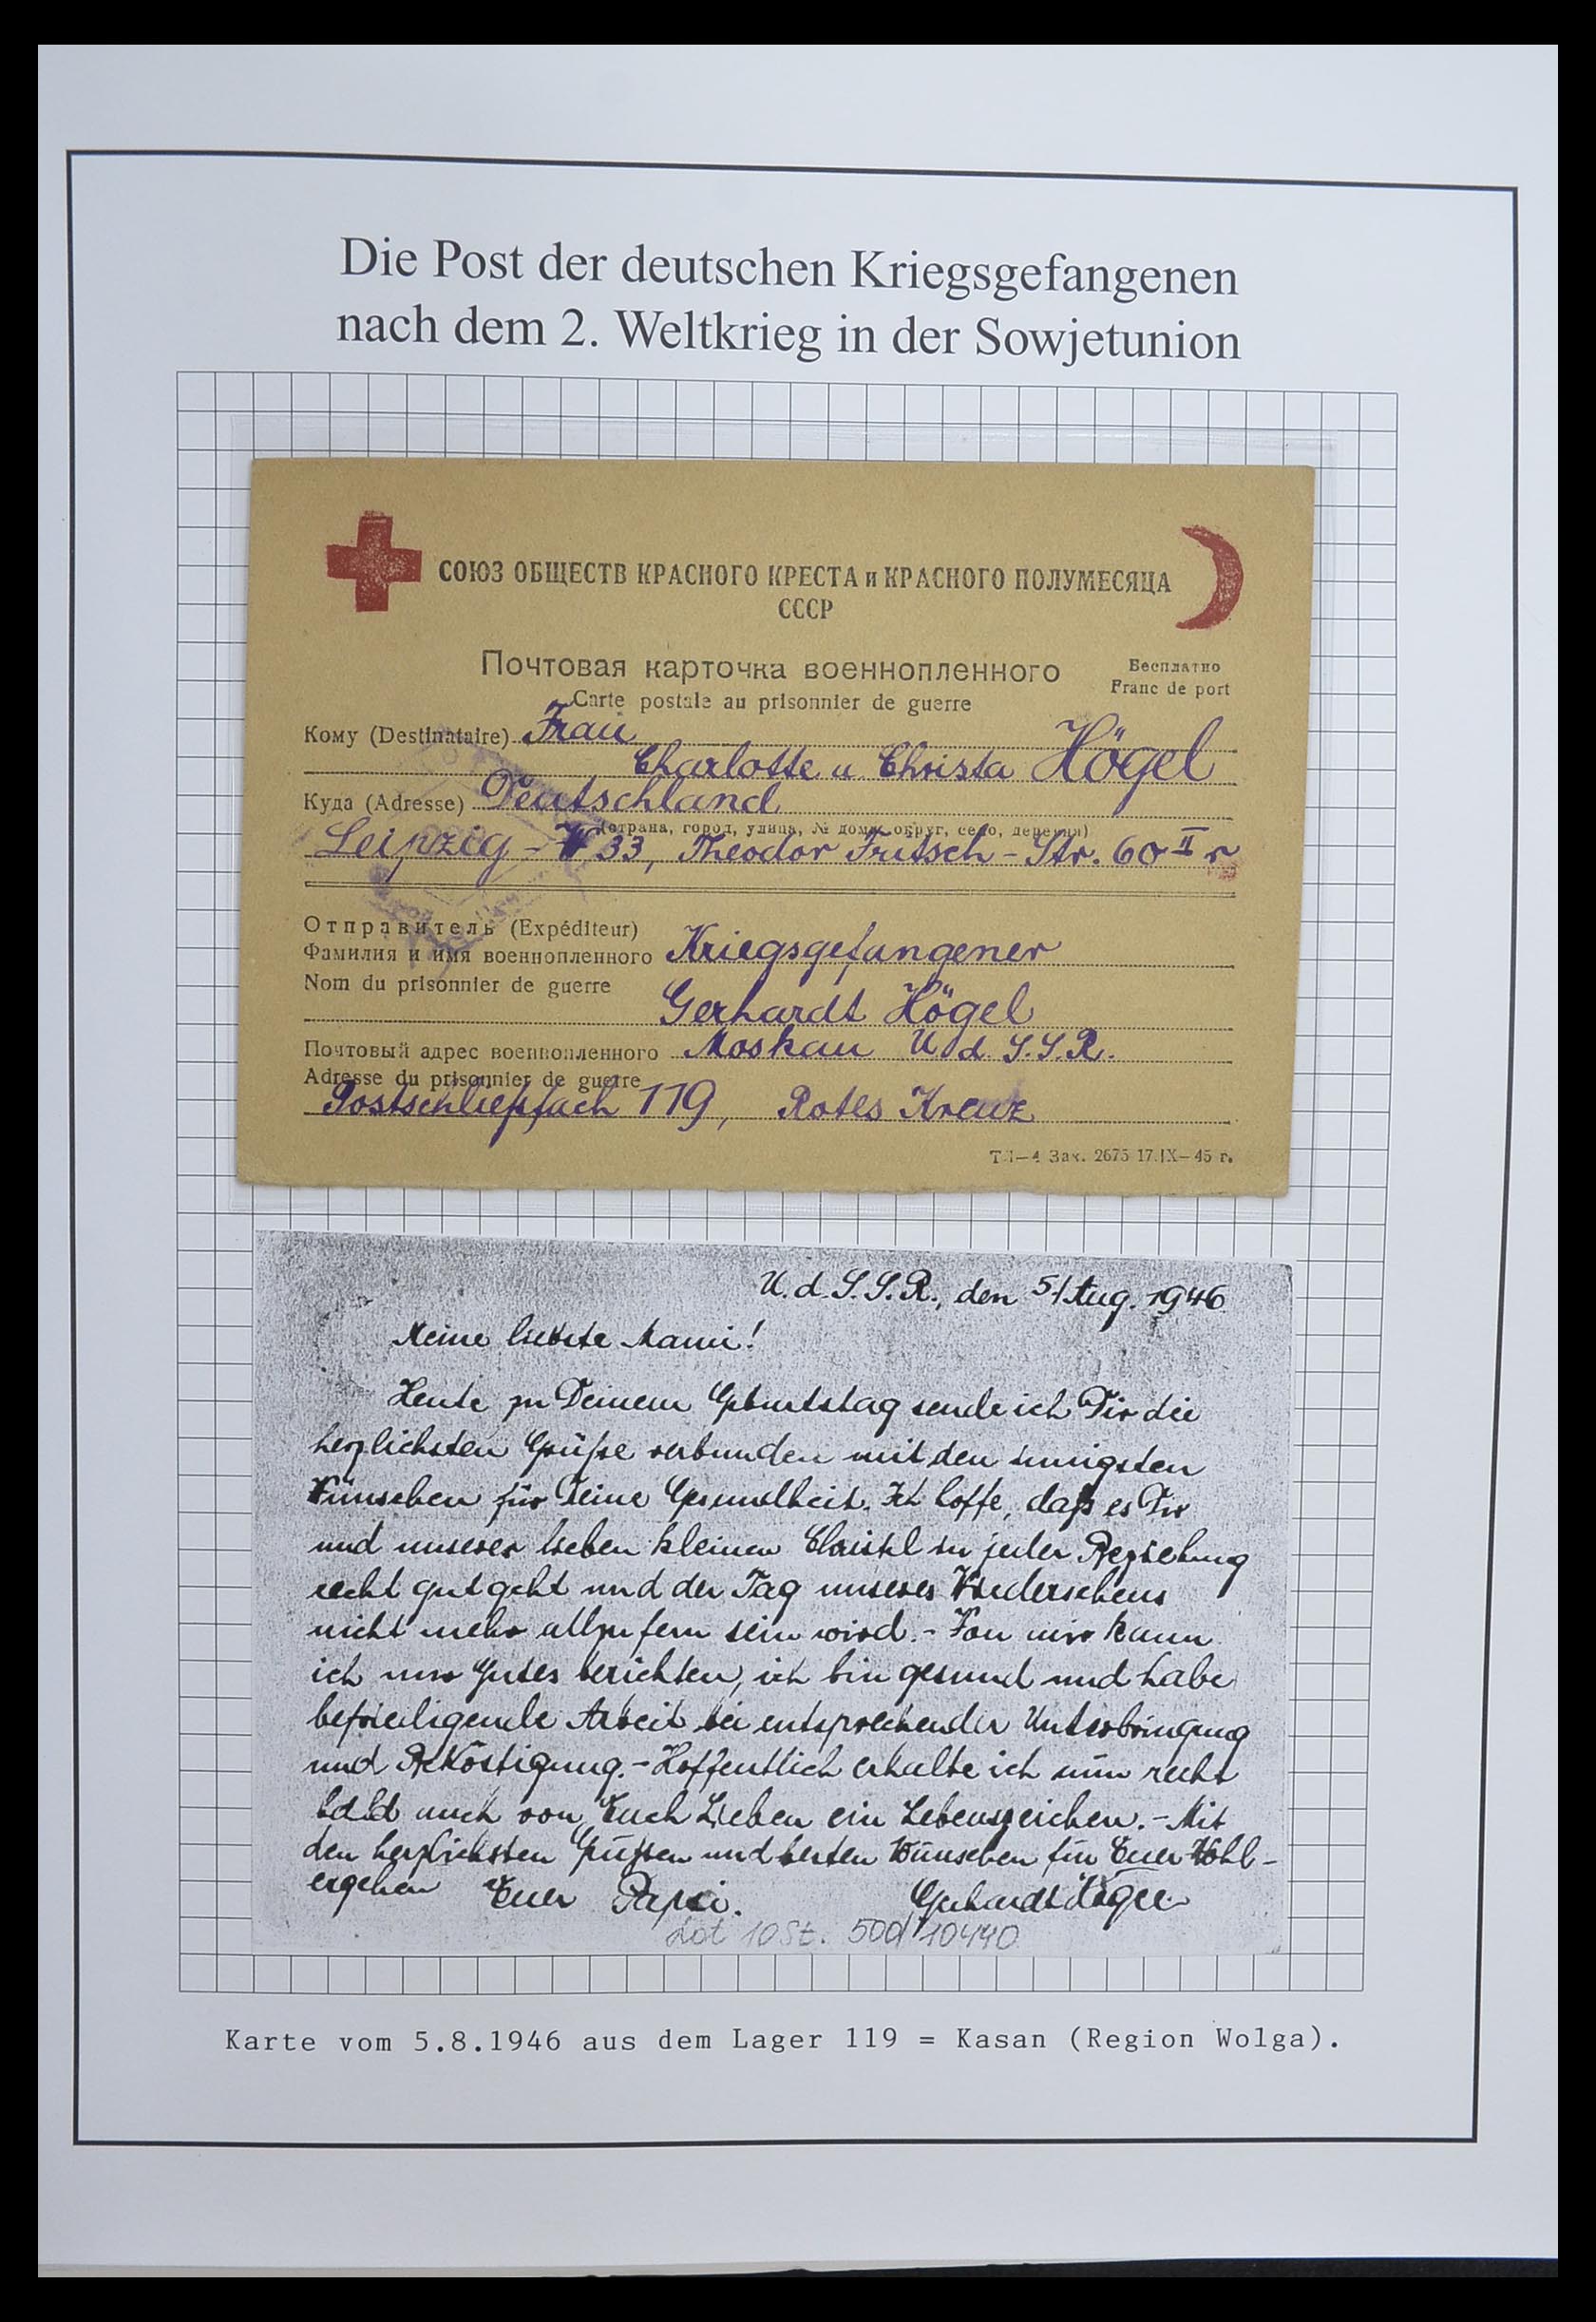 Die Post der deutschen Kriegsgefangenen
nach dem 2. Weltkrieg in der Sowjetunion
СОЮЗ ОБЩЕСТВ КРАСНОГО КРЕСТА и КРАСНОГО ПОЛУМЕСЯЦА
СССР
Почтовая карточка военнопленного
Бесплатно
Carte postale au prisonnier de guerre
Franc de port
Кому (Destinataire) Frau
Charlotte u Christa Högel
Куда (Adresse) Deutschland
(страна, город, улица, № дома, округ, село, деревня)
Leipzig - W 33, Theodor Fritsch - Str. 60 II r
Отправитель (Expéditeur)
Фамилия и имя военнопленного Kriegsgefangener
Nom du prisonnier de guerre
Gerhardt Högel
Почтовый адрес военнопленного Moskau U d. S.S.R.
Adresse du prisonnier de guerre
Postschließfach 119, Rotes Kreuz
Зак. 2675 17.IX-45 г.
U.d.S.S.R., den 5/Aug. 1946
Meine liebste Mami!
Heute zu Deinem Geburtstag sende ich Dir die
herzlichsten Grüße verbunden mit den innigsten
Wünschen für Deine Gesundheit. Ich hoffe, daß es Dir
und unserer lieben kleinen Christel in jeder Beziehung
recht gut geht und der Tag unseres Wiedersehens
nicht mehr allzu fern sein wird. - Von mir kann
ich nur Gutes berichten, ich bin gesund und habe
befriedigende Arbeit bei entsprechender Unterbringung
und Beköstigung. - Hoffentlich erhalte ich nun recht
bald auch von Euch Lieben ein Lebenszeichen. - Mit
den herzlichsten Grüßen und besten Wünschen für Euer Wohl-
ergehen Euer Papi. Gerhardt Högel
Lot 10 St. 500/10440
Karte vom 5.8.1946 aus dem Lager 119 = Kasan (Region Wolga).